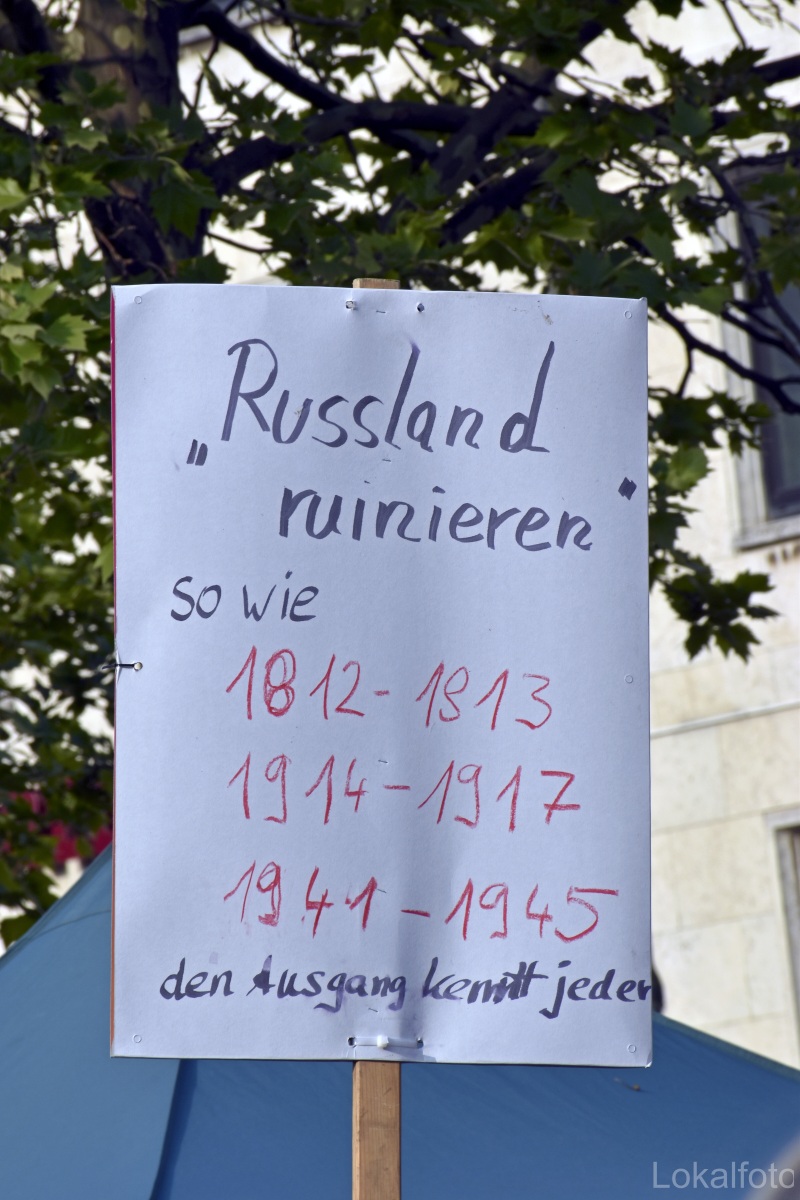 „Russland
ruinieren"
so wie
1812- 1813
1914-1917
1941-1945
den Ausgang kennt jeder
Lokalfoto